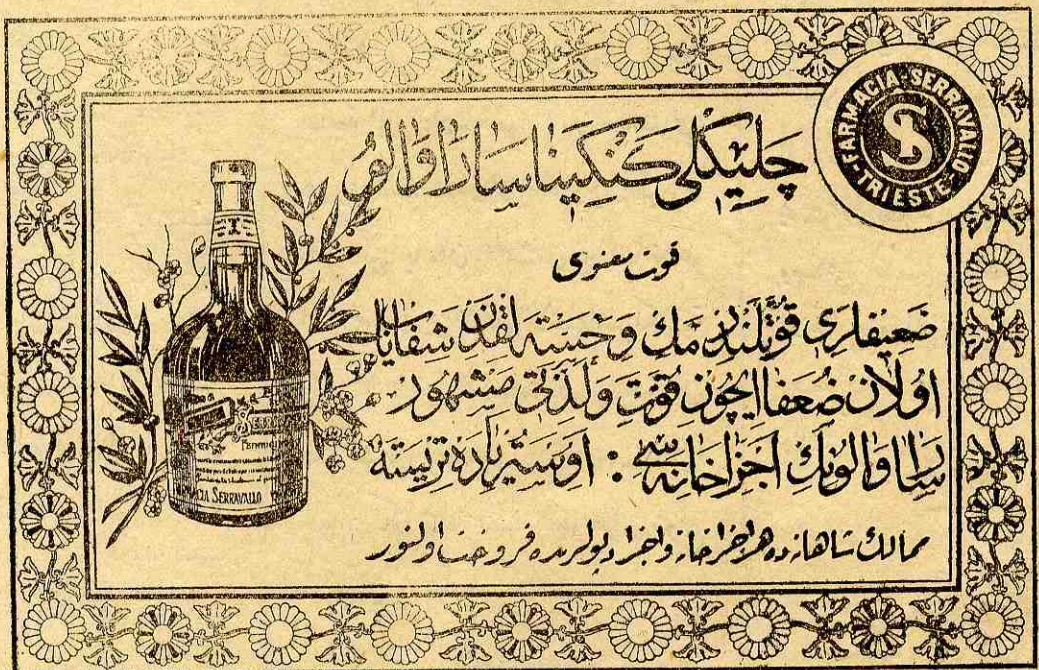 FARMACIA SERRAVALLO
TRIESTE
S
چليكلى كنكينا ساراوالو
قوت معنوى
ضعيفلرى قوتلندرمك وخسته لقدن شفاياب
اولان ضعفا ايچون قوت ولذتى مشهور
ساراوالونك اجزاخانه سى : اوستريا ده تريسته
ممالك شاهانه ده هر اجزاخانه واجزا دپولرنده فروخت اولنور
SERRAVALLO